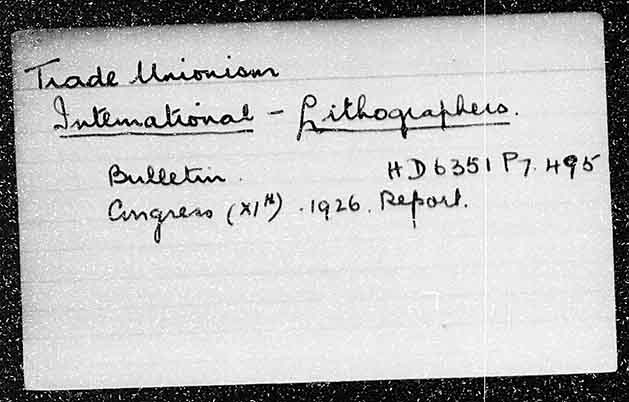 Trade Unionism
International - Lithographers.
Bulletin. HD6351 P7.495
Congress (XIth). 1926. Report.